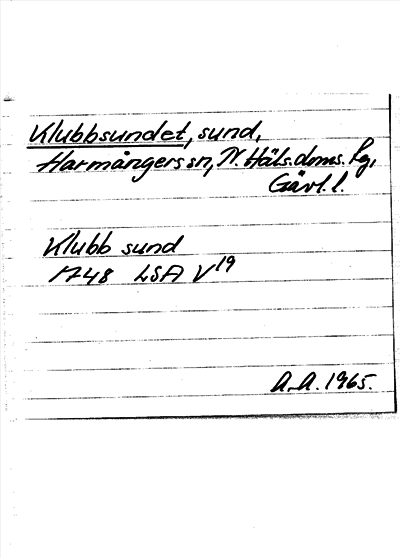 Klubbsundet, sund,
Harmångers sn, N. Häls. doms. fg,
Gävl. l.
Klubb sund
1748 LSA V19
A.A. 1965.